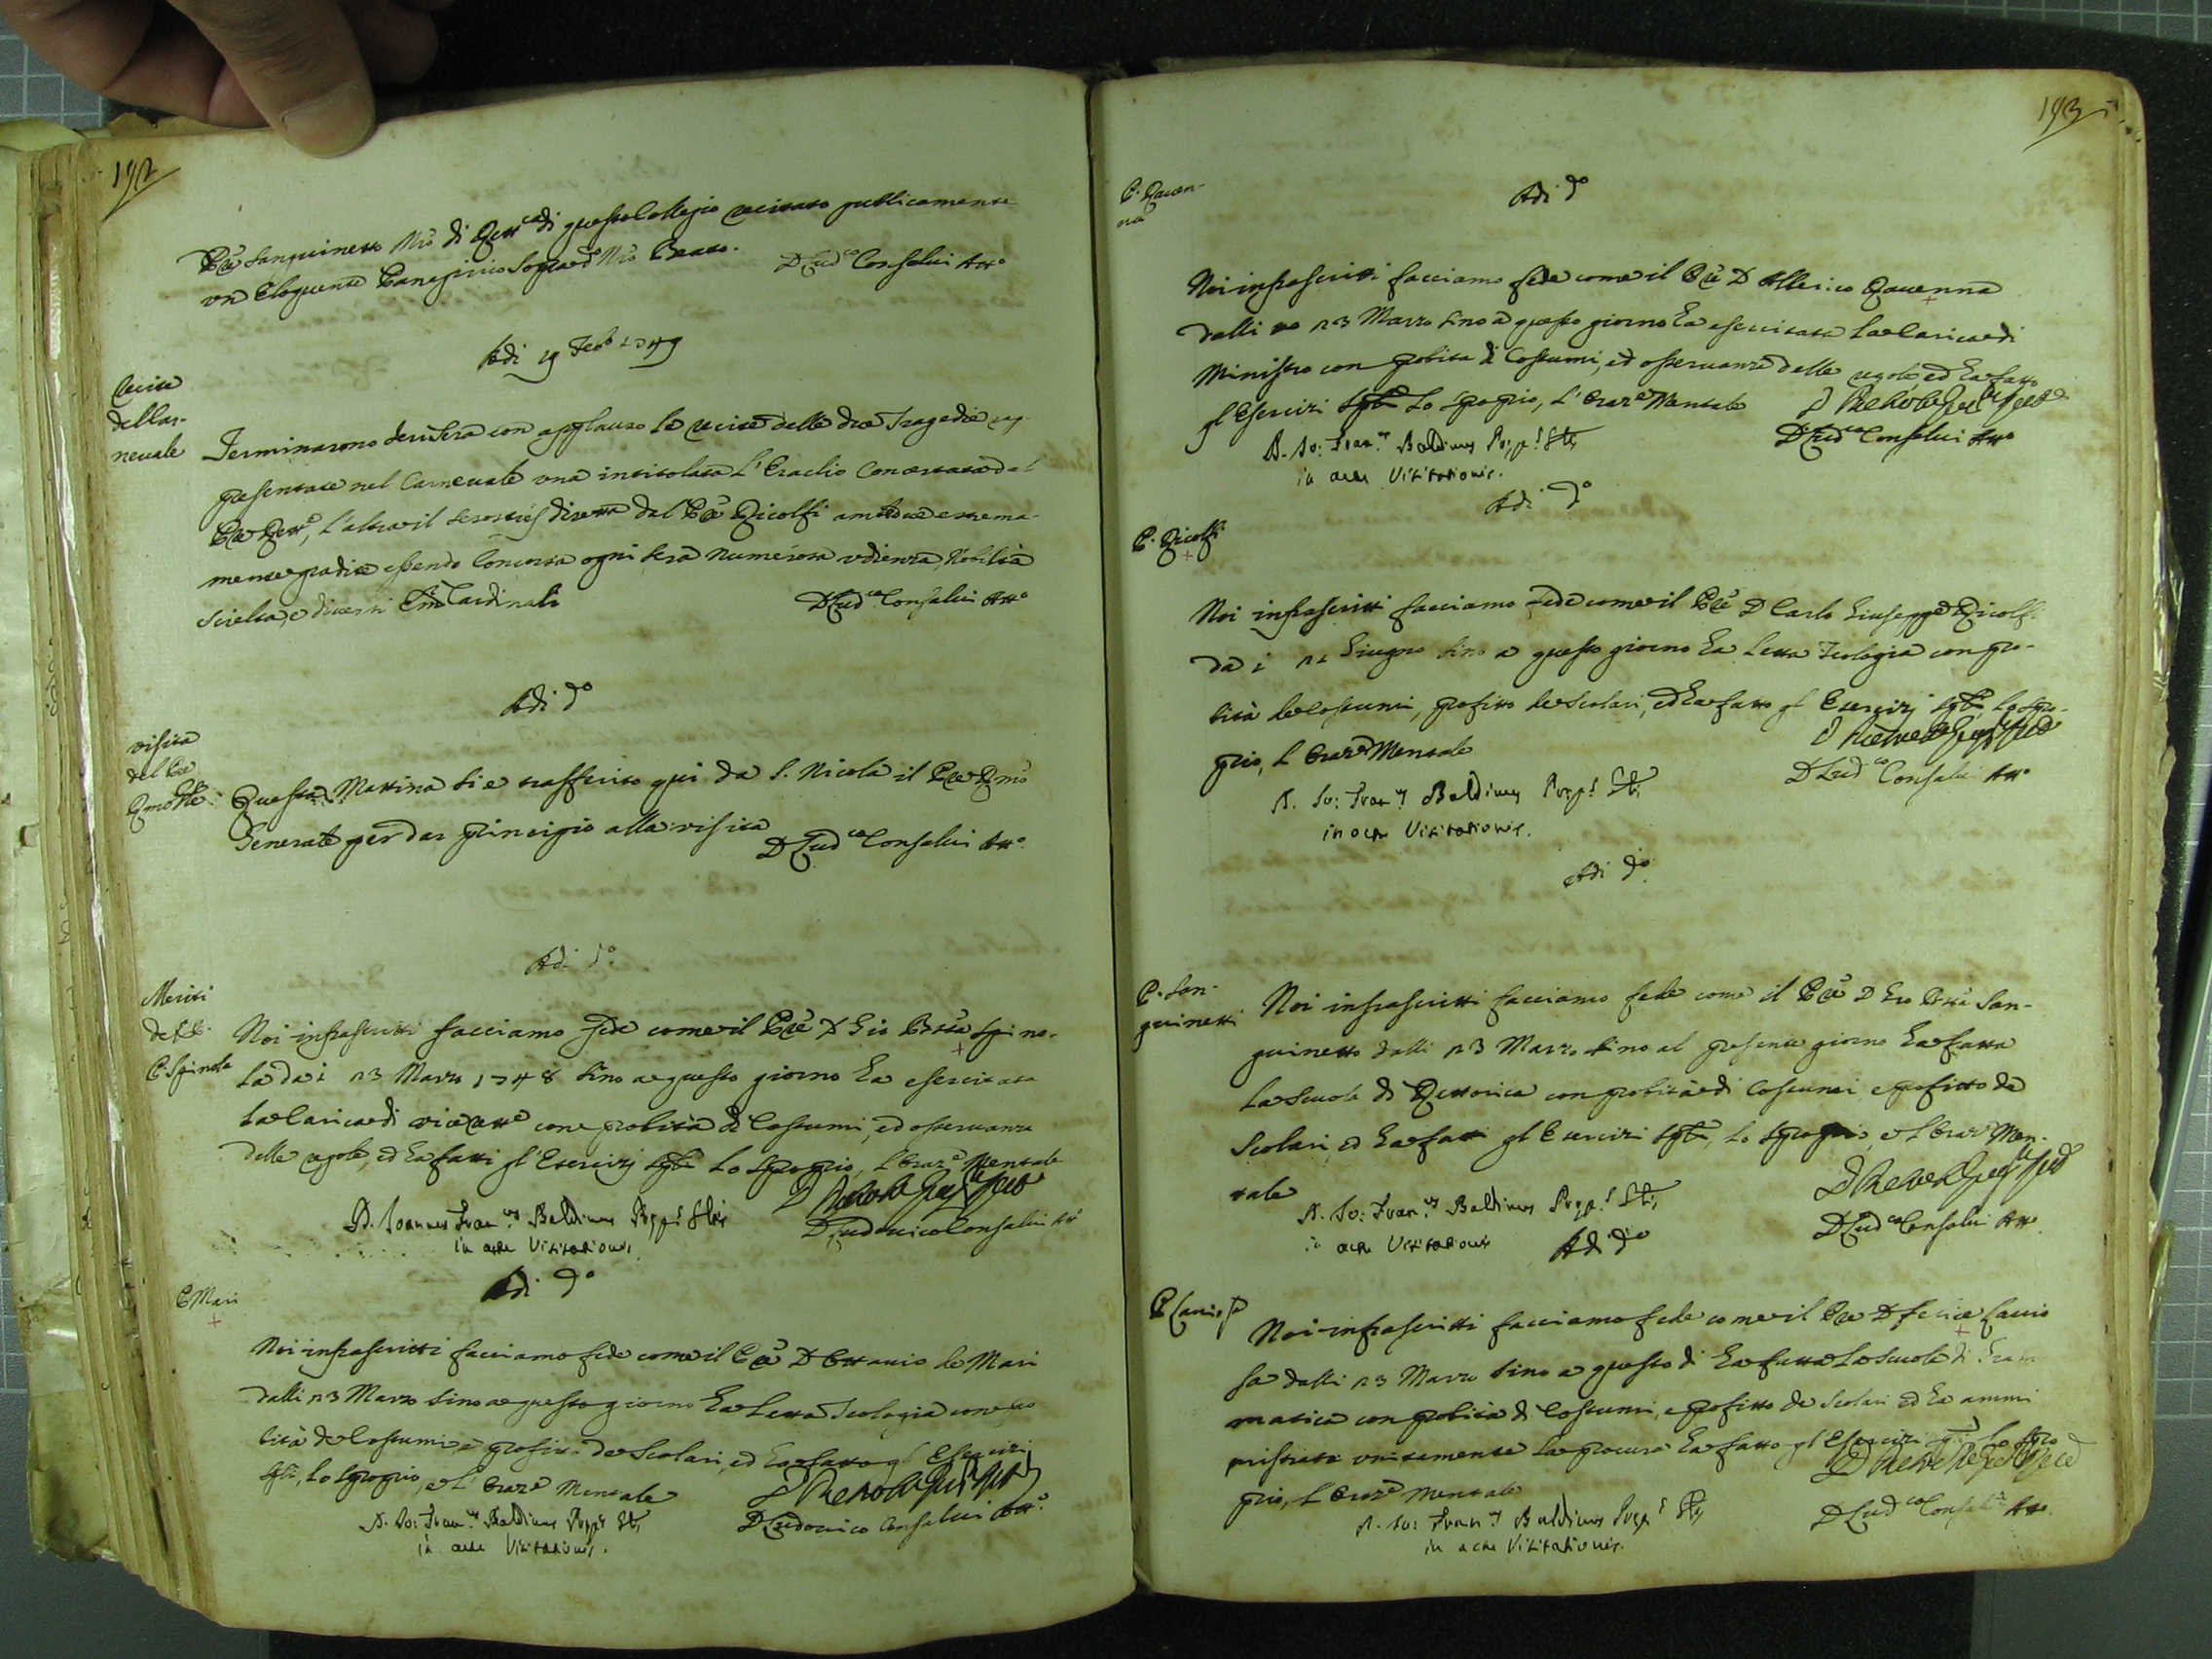 192
Pre Sanguinetto Mro di Rettca di questo Collegio recitato pubblicamente
un Eloquente Panegirico Sopra d. Nro Beato.
D Ludco Consalvi Atto
Adi 19 Febo 1749
Recite
del Car-
nevale
Terminarono ieri sera con applauso le recite delle due Tragedie rap-
presentate nel Carnevale una intitolata l'Eraclio Concertata dal
Pre Rettre, l'altra il diretta dal Pre Ricolfi ambedue estrema-
mente gradite essendo Concorsa ogni sera numerosa udienza, Nobiltà
scielta, e diversi Emi Cardinali
D Ludco Consalvi Atto
Adi do
visita
del Pre
Rmo Gle
Questa Mattina si è trasferito qui da S. Nicola il Pre Rmo
Generale per dar principio alla visita
D Ludco Consalvi Atto
Adi do
Meriti
de PP.
P Spinola
Noi infrascritti facciamo fede come il Pre D Gio Batta Spino-
la da i 23 Marzo 1748 sino a questo giorno ha esercitata
la Carica di vice Rettre con probità di Costumi, ed osservanza
delle regole, ed ha fatti gl'Esercizj Spli lo Sproprio, l'Orazne Mentale
D. Joannes Francus Baldinus Prepts Glis
in actu Visitationis
D Ludovico Consalvi Atto
Adi do
P Mari
Noi infrascritti facciamo fede come il Pre D Ottavio de Mari
dalli 23 Marzo sino a questo giorno ha Letta Teologia con pro
bità de Costumi e profitto de Scolari, ed ha fatto gl'Esercizj
Spli, lo Sproprio, e l'Orazne Mentale
D. Jo: Francus Baldinus Prepts Glis
in actu Visitationis.
D Ludovico Consalvi Atto
193
P. Raven-
na
Adi do
Noi infrascritti facciamo fede come il Pre D Alberico Ravenna
dalli 23 Marzo sino a questo giorno ha esercitata la Carica di
Ministro con probità di Costumi, ed osservanza delle regole, ed ha fatto
gl'Esercizi Spli lo Sproprio, l'Orazne Mentale
D. Jo: Francus Baldinus Prepts Glis
in actu Visitationis.
D Ludco Consalvi Atto
Adi do
P. Ricolfi
Noi infrascritti facciamo Fede come il Pre D Carlo Giuseppe Ricolfi
da i 21 Giugno sino a questo giorno ha Letta Teologia con pro-
bità de Costumi, profitto de Scolari, ed ha fatto gl Esercizj Spli, lo Spro-
prio, l Orazne Mentale
D. Jo: Francus Baldinus Prepts Glis
in actu Visitationis.
D Ludco Consalvi Atto
Adi do
P. San-
guinetti
Noi infrascritti facciamo fede come il Pre D Gio Batta San-
guinetto dalli 23 Marzo sino al presente giorno ha fatta
la Scuola di Rettorica con probità di Costumi e profitto de
Scolari, ed ha fatti gl Esercizi Spli, lo Sproprio, e l Orazne Men-
tale
D. Jo: Francus Baldinus Prepts Glis
in actu Visitationis
D Ludco Consalvi Atto
Adi do
P Caviosa
Noi infrascritti facciamo fede come il Pre D Felice Cavio
sa dalli 23 Marzo sino a questo di ha fatta la Scuola di Gram
matica con probità di Costumi, e profitto de Scolari ed ha ammi
nistrata unitamente la procura ha fatto gl'Esercizi Spli lo Spro
prio, l Orazne Mentale
D. Jo: Francus Baldinus Prepts Glis
in actu Visitationis.
D Ludco Consalvi Atto